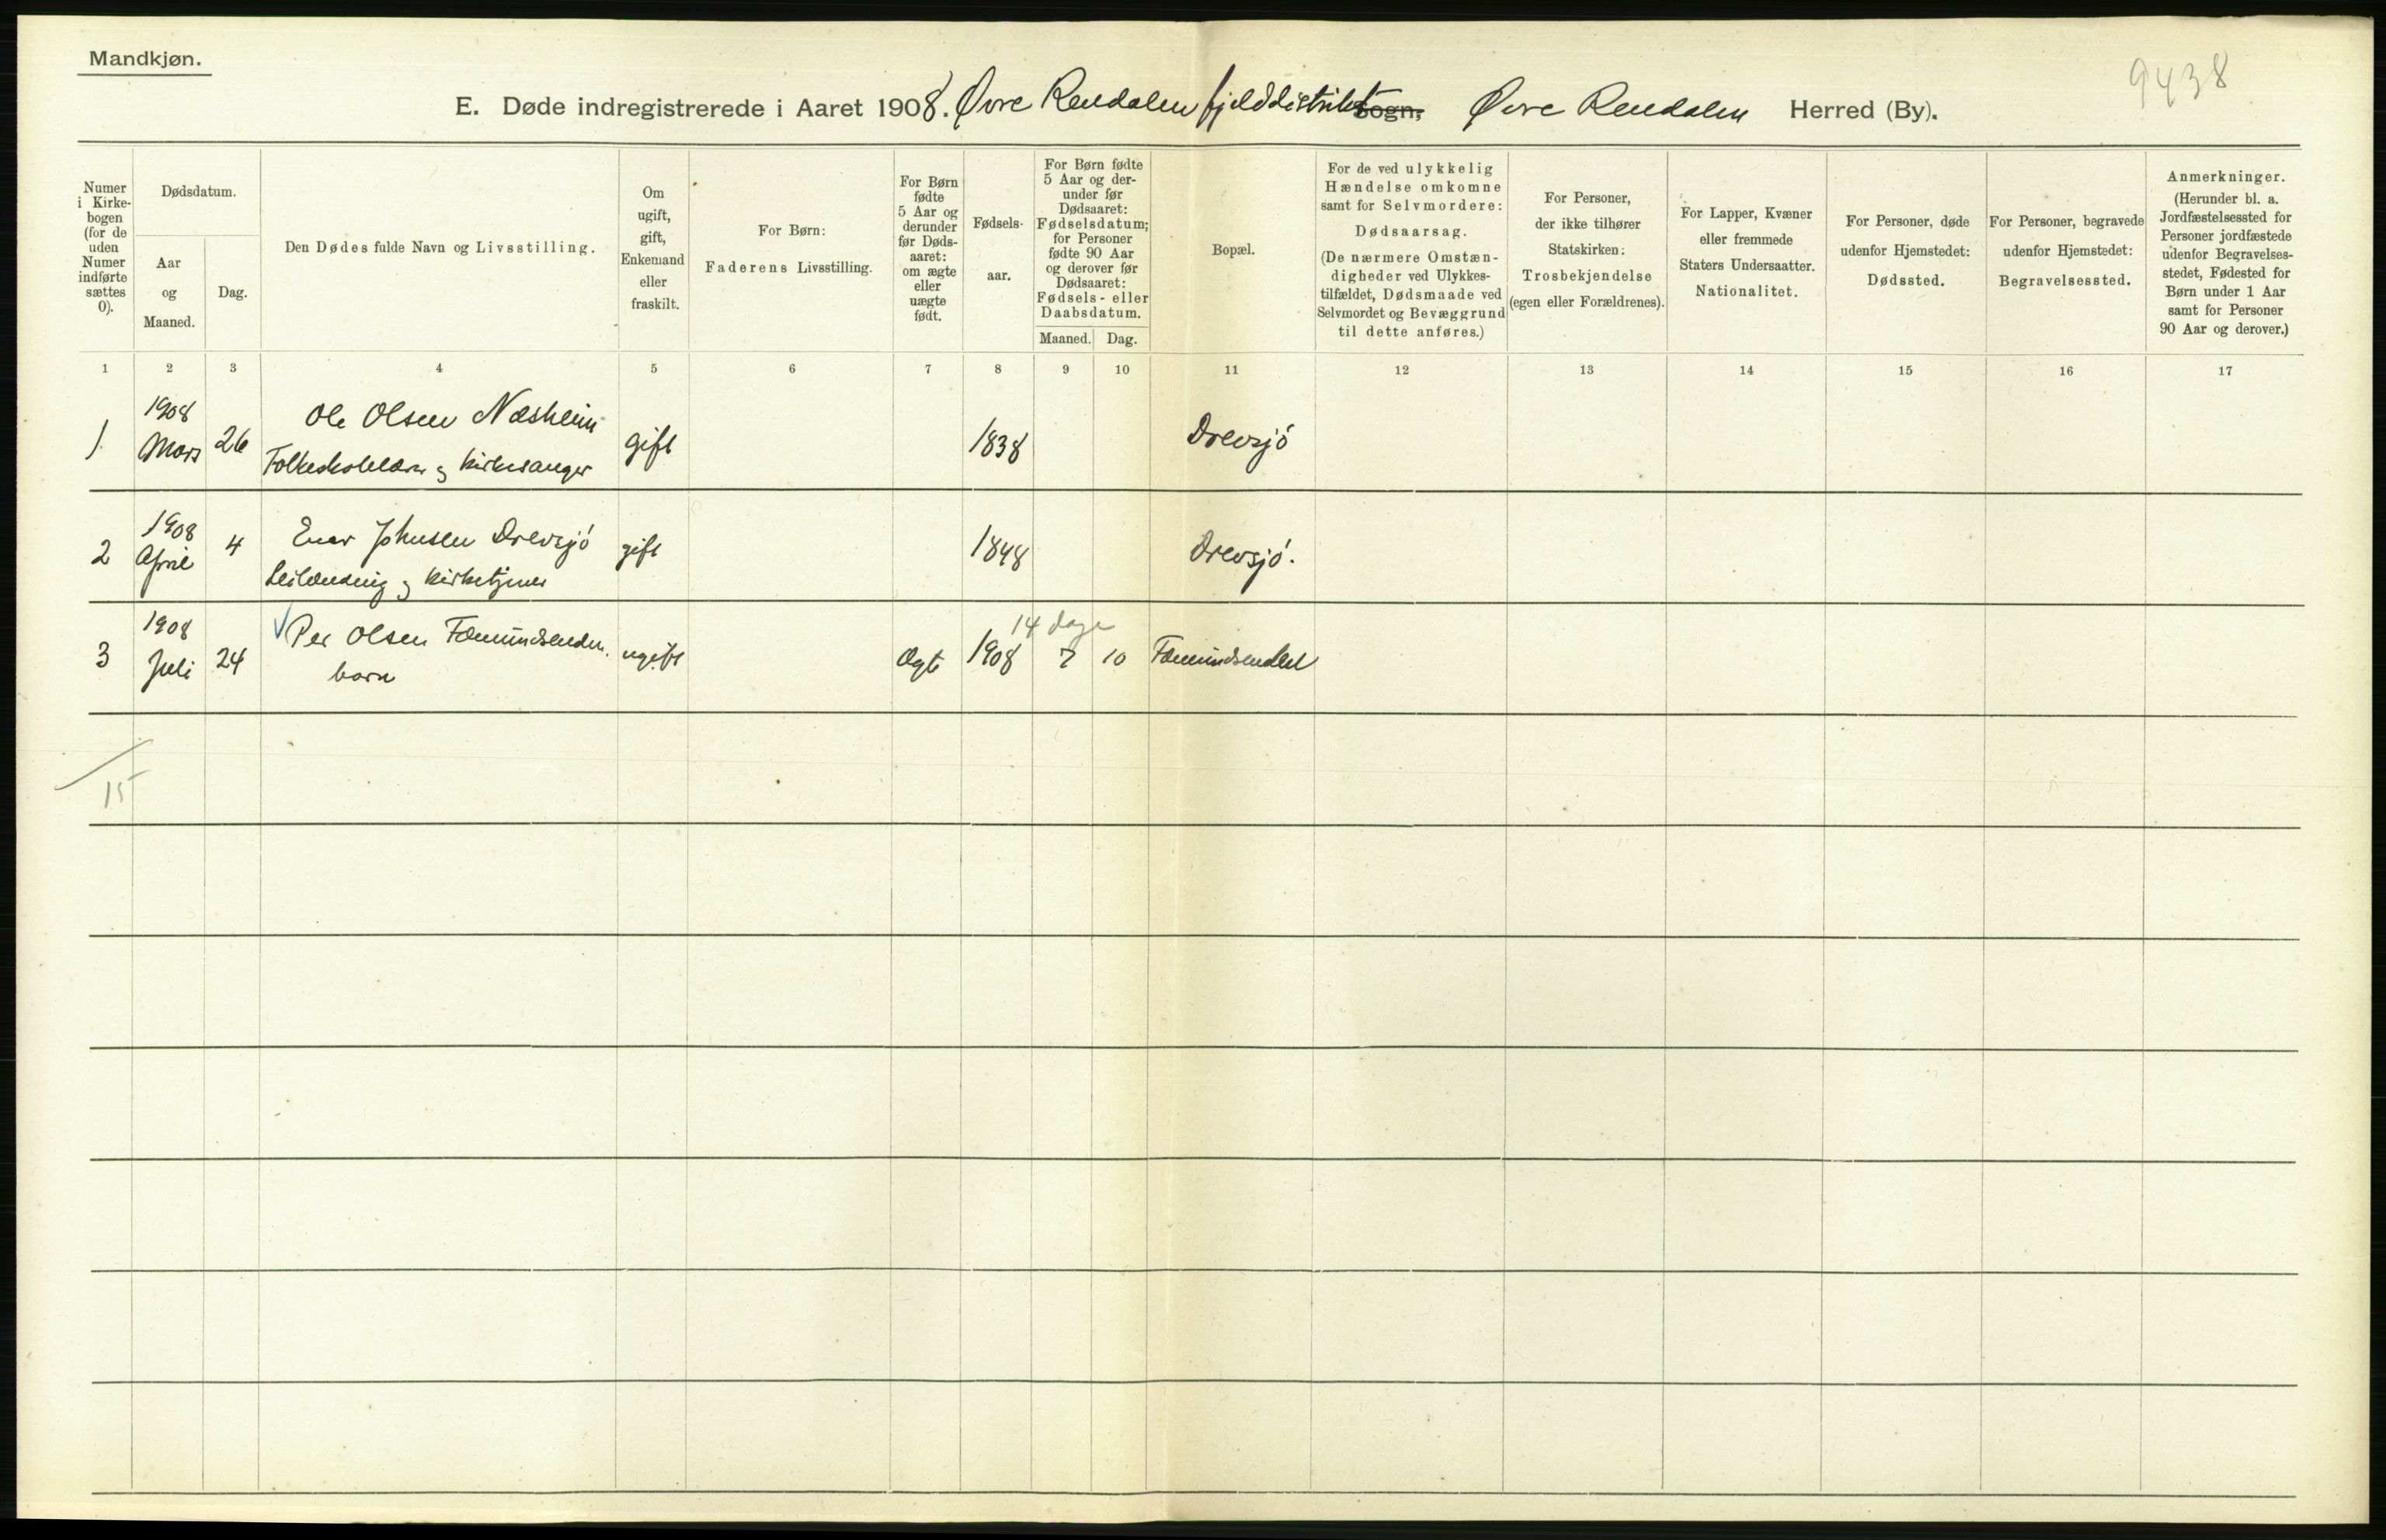 Mandkjøn.
9438
E. Døde indregistrerede i Aaret 1908. Øvre Rendalen fjelddistrikt Sogn, Øvre Rendalen Herred (By).
Numer
i Kirke-
bogen
(for de
uden
Numer
indførte
sættes
0).
Dødsdatum.
Aar
og
Maaned.
Dag.
Den Dødes fulde Navn og Livsstilling.
Om
ugift,
gift,
Enkemand
eller
fraskilt.
For Børn:
Faderens Livsstilling.
For Børn
fødte
5 Aar og
derunder
før Døds-
aaret:
om ægte
eller
uægte
født.
Fødsels-
aar.
For Børn fødte
5 Aar og der-
under før
Dødsaaret:
Fødselsdatum;
for Personer
fødte 90 Aar
og derover før
Dødsaaret:
Fødsels- eller
Daabsdatum.
Maaned. Dag.
Bopæl.
For de ved ulykkelig
Hændelse omkomne
samt for Selvmordere:
Dødsaarsag.
(De nærmere Omstæn-
digheder ved Ulykkes-
tilfældet, Dødsmaade ved
Selvmordet og Bevæggrund
til dette anføres.)
For Personer,
der ikke tilhører
Statskirken:
Trosbekjendelse
(egen eller Forældrenes).
For Lapper, Kvæner
eller fremmede
Staters Undersaatter.
Nationalitet.
For Personer, døde
udenfor Hjemstedet:
Dødssted.
For Personer, begravede
udenfor Hjemstedet:
Begravelsessted.
Anmerkninger.
(Herunder bl. a.
Jordfæstelsessted for
Personer jordfæstede
udenfor Begravelses-
stedet, Fødested for
Børn under 1 Aar
samt for Personer
90 Aar og derover.)
1 2 3 4 5 6 7 8 9 10 11 12 13 14 15 16 17
1908 Ole Olsen Næsheim
1 Mars 26 Folkeskolelærer og Kirkesanger gift 1838 Drevsjö
1908 Johnsen Drevsjö
2 April 4 Leilænding og Kirketjener gift 1848 Drevsjö.
1908 Per Olsen Fæmundsenden. 14 dage
3 Juli 24 barn ugift Ægte 1908 7 10 Fæmundsenden
15